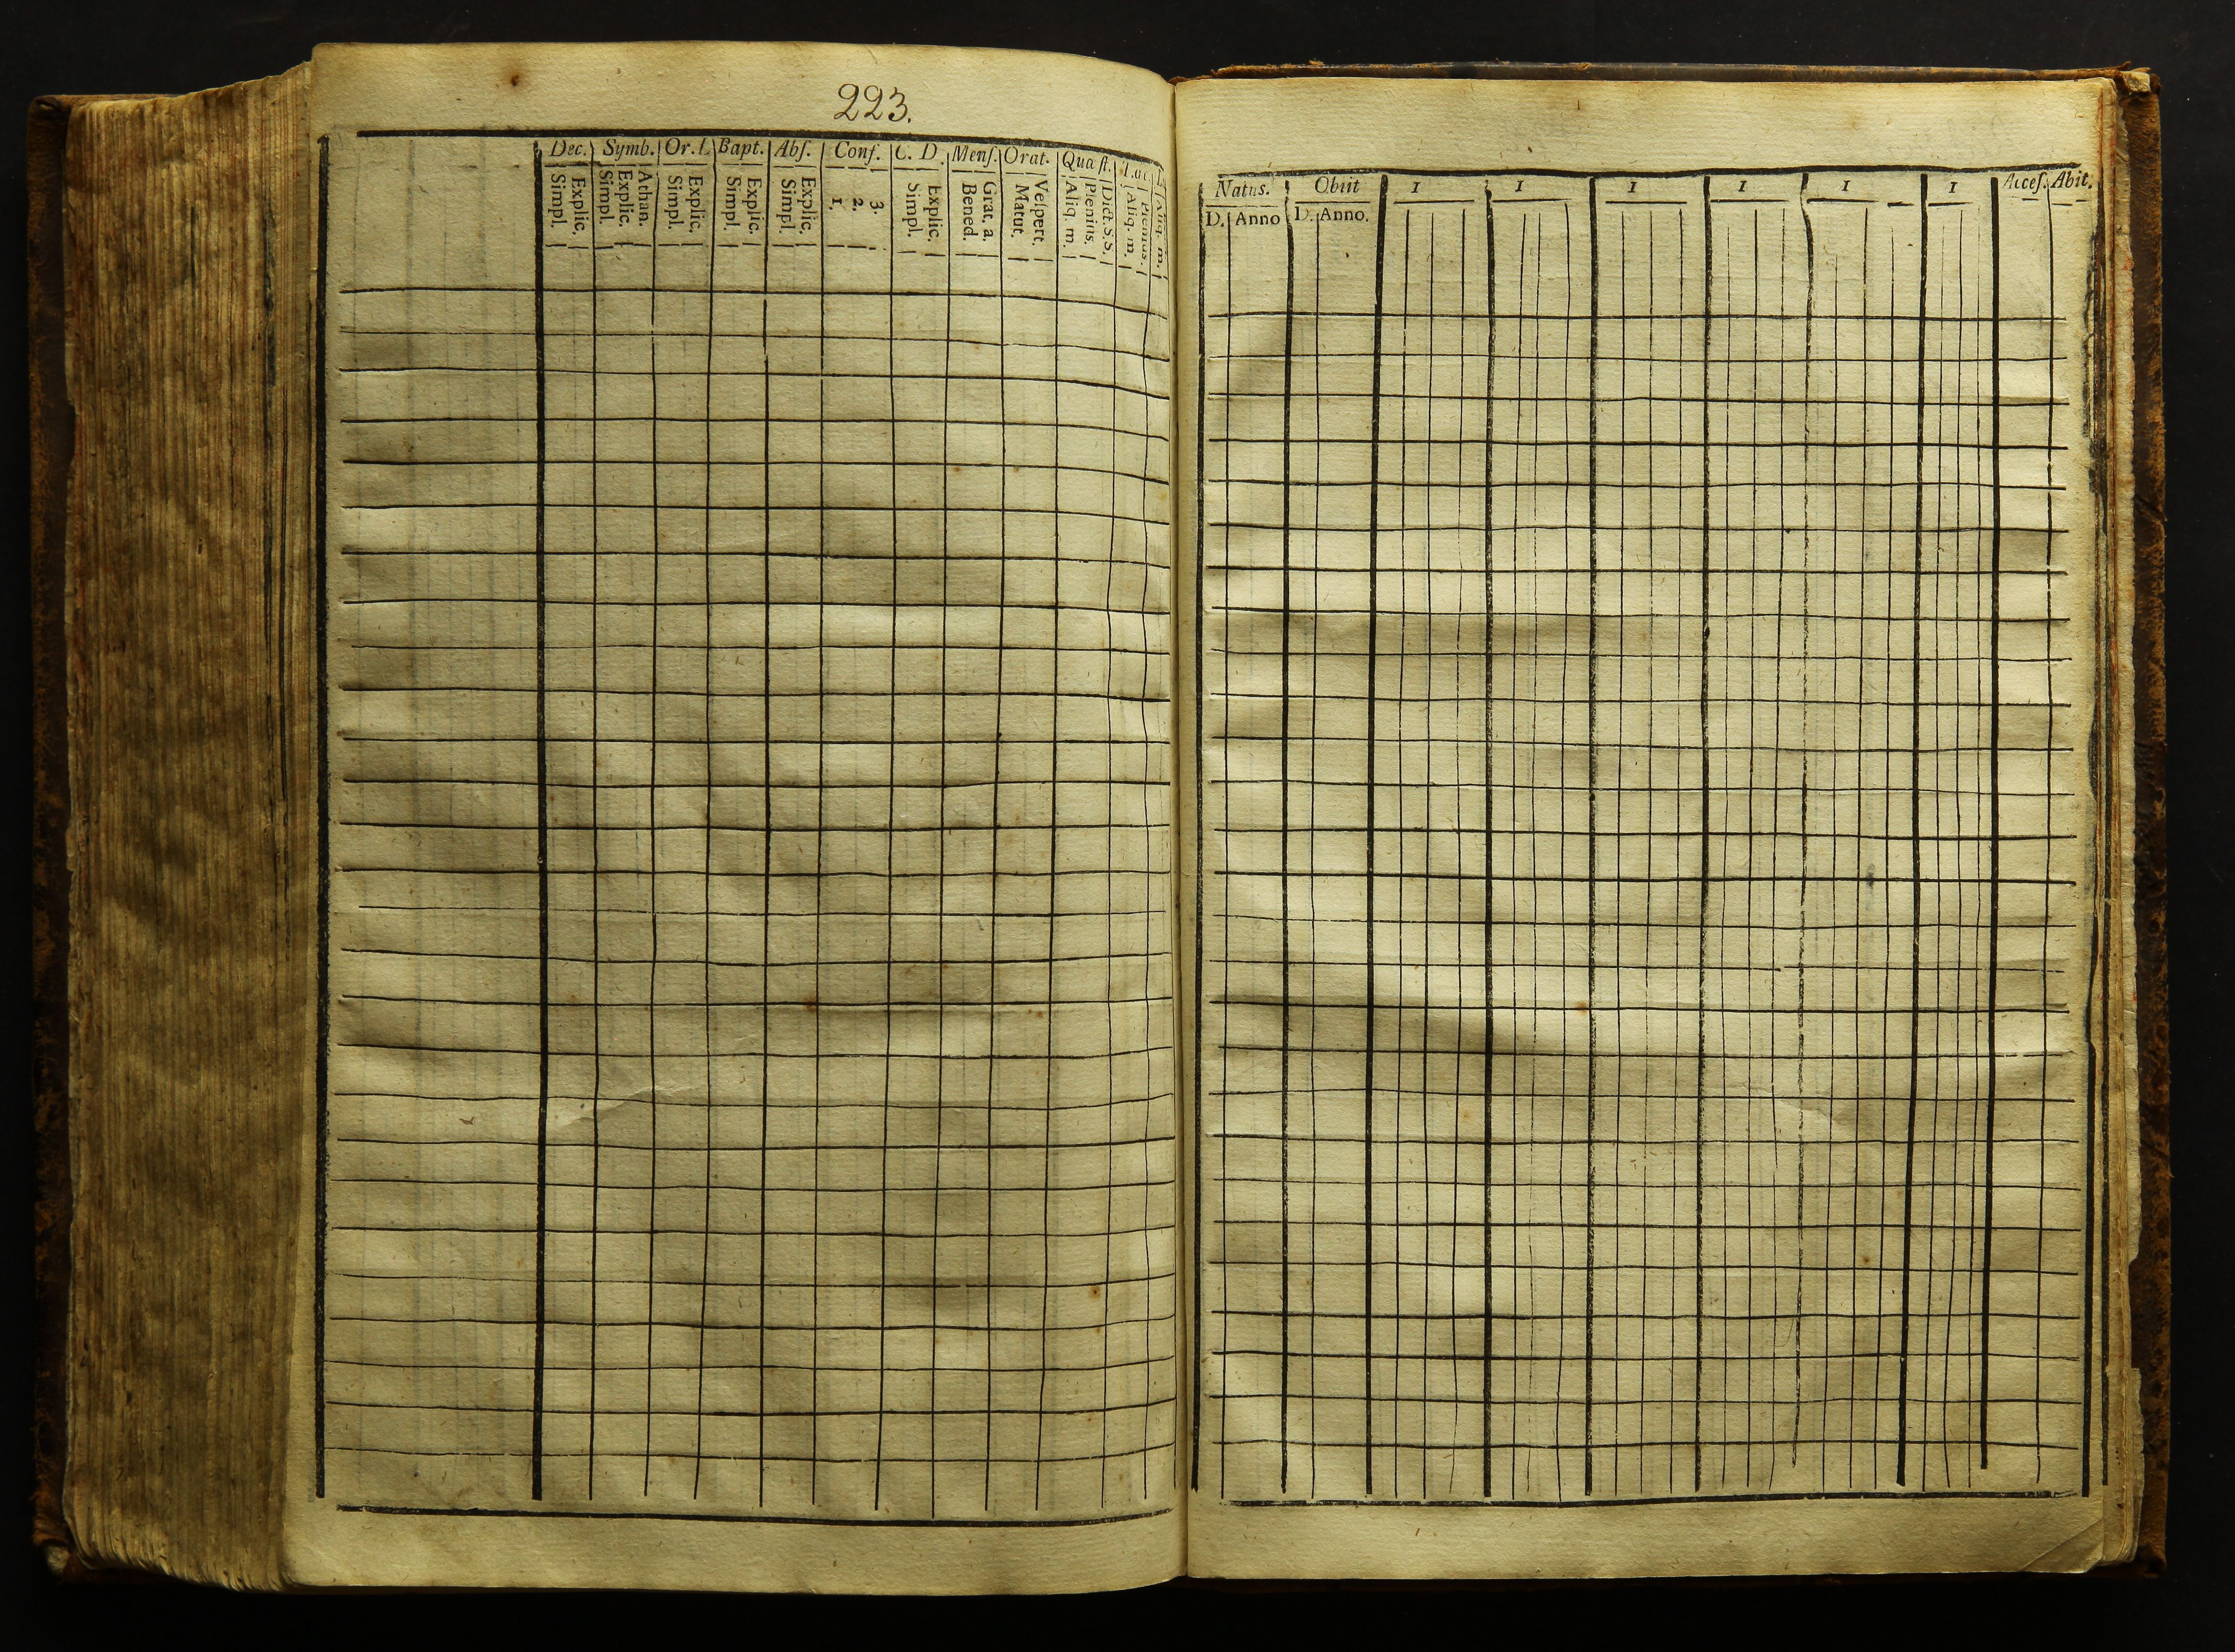 223.
Dec. Symb. Or. Bapt. Abſ. Conf. C. D. Menſ. Orat. Quæſt.
Simpl. Explic. Simpl. Explic. Athan. Simpl. Explic. Simpl. Explic. Simpl. Explic. 1. 2. 3. Simpl. Explic. Bened. Grat. a. Matut. Veſpert. Aliq. m. Plenius. Dict. S.S. Aliq. m. Plenius. Aliq. m.
Natus. Obiit 1 1 1 1 1 1 Acceſ. Abit.
D. Anno D. Anno.